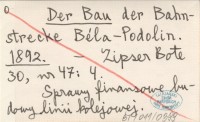 0
Der Bau der Bahn-
strecke Béla-Podolin.
1892. — Zipser Bote
30, nr 47: 4.
Sprawy finansowe bu-
dowy linii kolejowej.